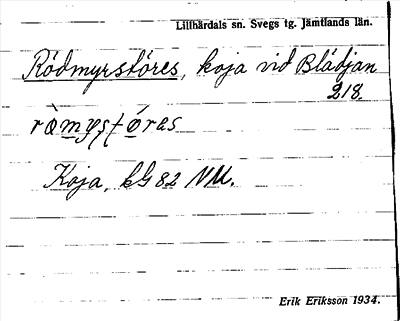 Lillhärdals sn. Svegs tg. Jämtlands län.
Rödmyrstöres, koja vid Blädjan
218.
Koja, bG 82 NM.
Erik Eriksson 1934.